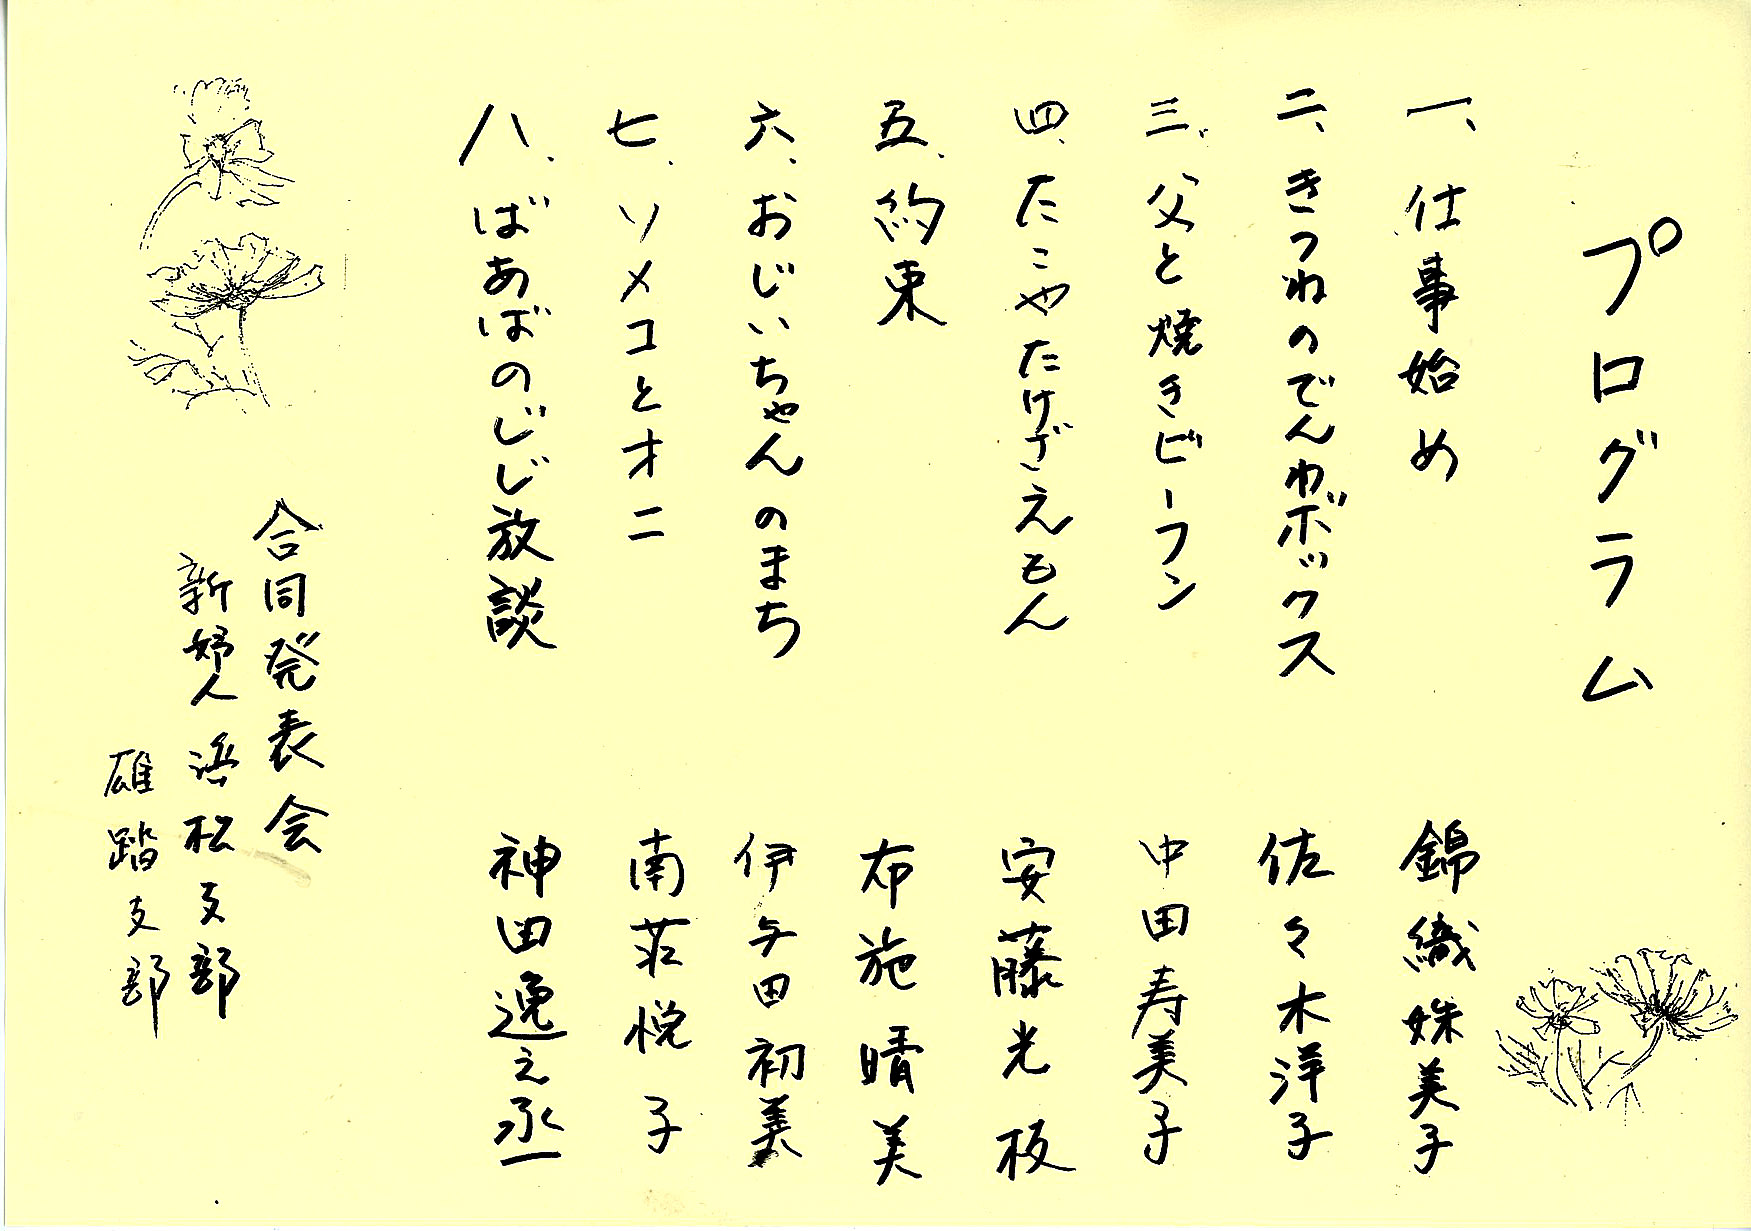 プログラム
一、仕事始め 錦織姝美子
二、きつねのでんわボックス 佐々木洋子
三、父と焼きビーフン 中田寿美子
四、たこやたけざえもん 安藤光板
五、約束 布施晴美
六、おじいちゃんのまち 伊与田初美
七、ソメコとオニ 南荘悦子
八、ばあばのじじ放談 神田逸之丞
合同発表会
新婦人浜松支部
雄踏支部